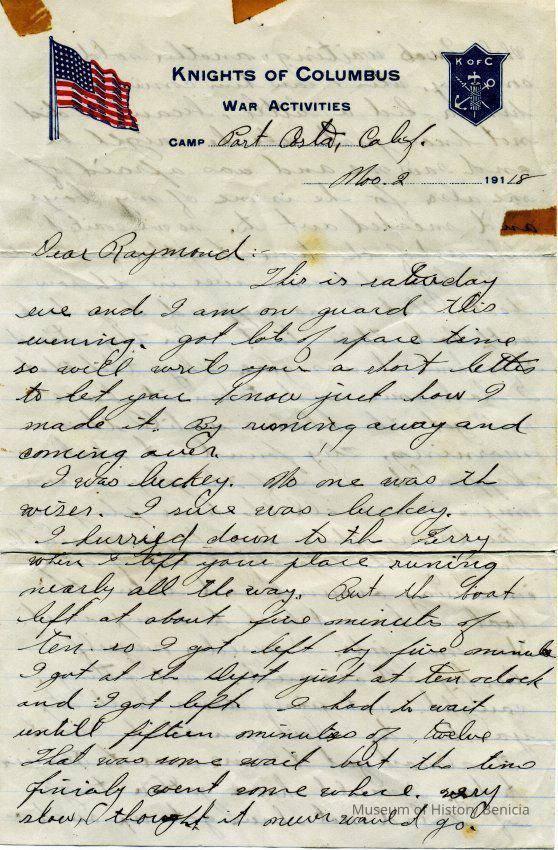 KNIGHTS OF COLUMBUS
K OF C
WAR ACTIVITIES
CAMP Port Costa, Calif.
Nov. 2 1918
Dear Raymond:-
This is saturday
eve and I am on guard this
evening. got lot of spare time
so will write you a short letter
to let you know just how I
made it. By runing away and
coming over.
I was luckey. No one was th
wiser. I sure was luckey.
I hurried down to th ferry
when I left your place runing
nearly all the way. But th boat
left at about five minuits of
ten. so I got left by five minuits
I got at th Depot just at ten oclock
and I got left I had to wait
untill fifteen minuites of twelve
That was some wait but th time
finialy went some where. very
slow, I thought it never would go.
Museum of History Benicia